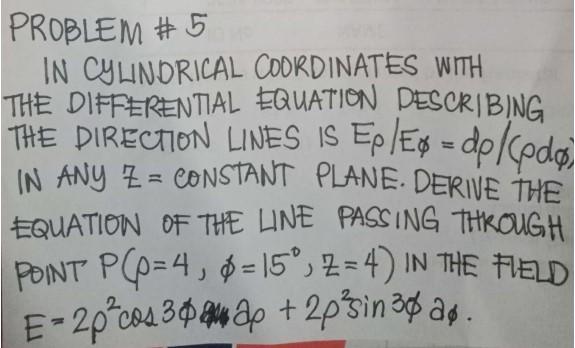 PROBLEM # 5
IN CYLINDRICAL COORDINATES WITH
THE DIFFERENTIAL EQUATION DESCRIBING
THE DIRECTION LINES IS Eρ/Eφ = dρ/(ρdφ)
IN ANY Z = CONSTANT PLANE. DERIVE THE
EQUATION OF THE LINE PASSING THROUGH
POINT P(ρ=4, φ=15°, Z=4) IN THE FIELD
E = 2ρ²cos3φ aρ + 2ρ²sin3φ aφ.